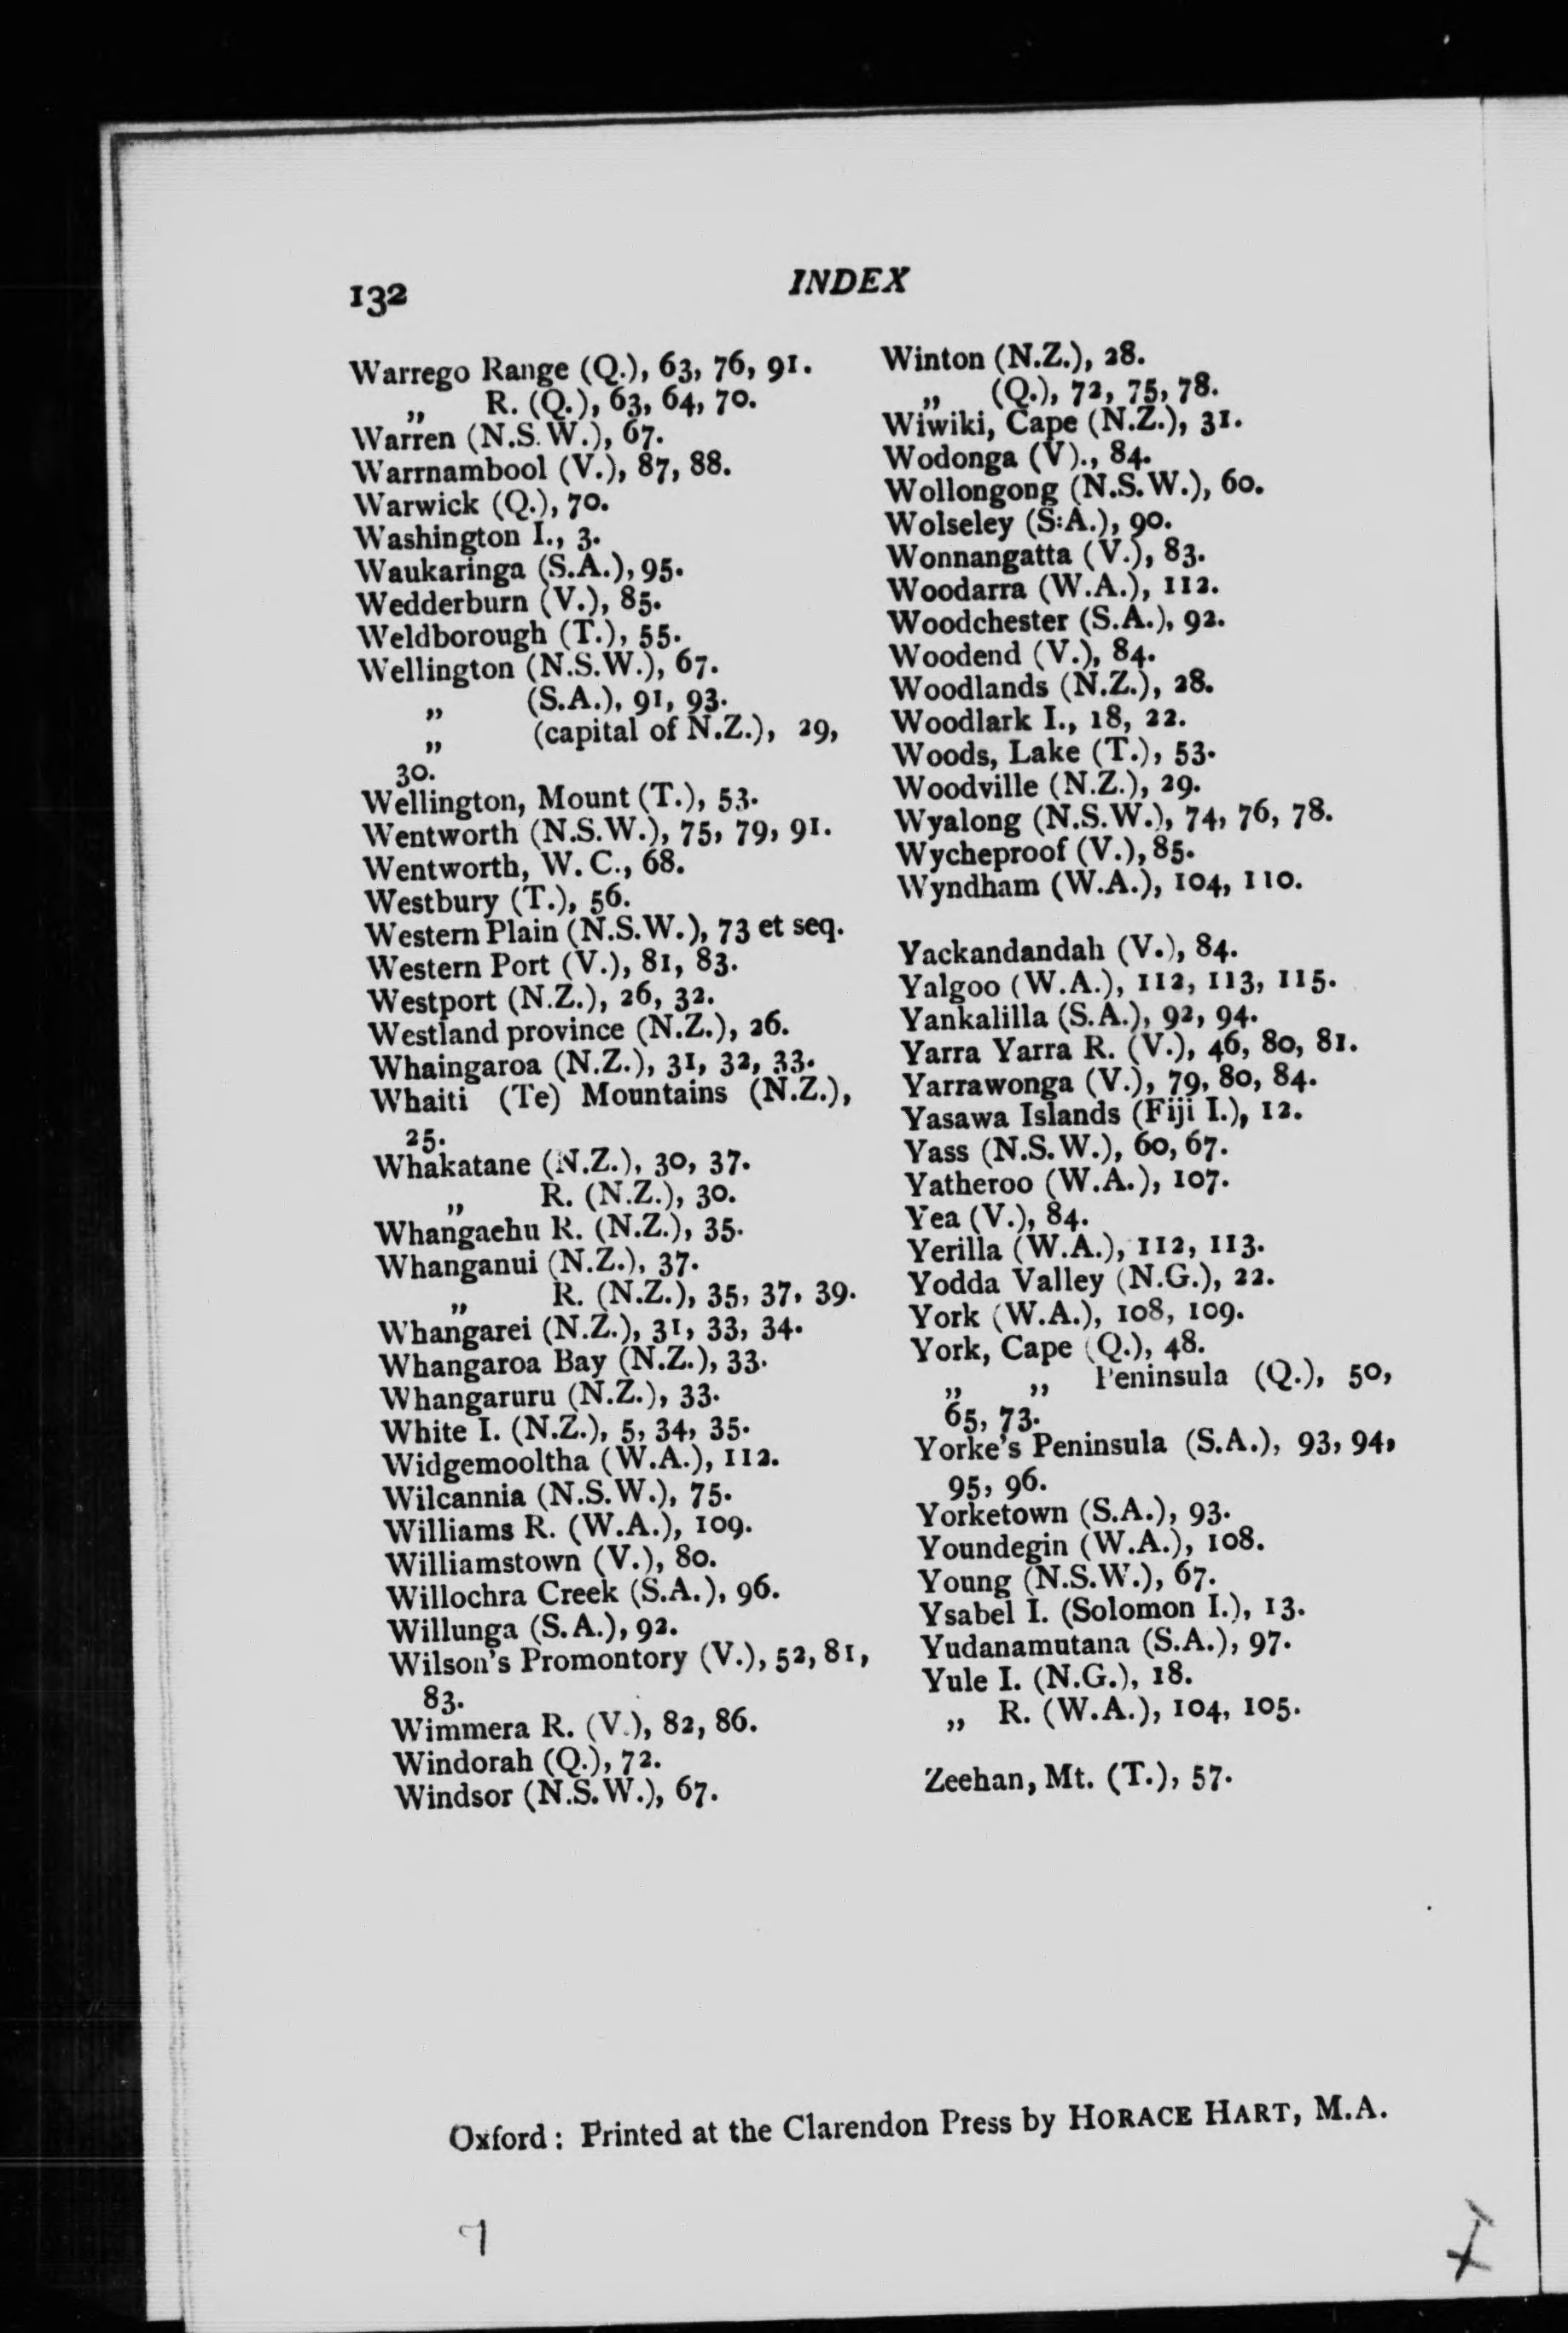 132
INDEX
Warrego Range (Q.), 63, 76, 91.
„ R. (Q.), 63, 64, 70.
Warren (N.S.W.), 67.
Warrnambool (V.), 87, 88.
Warwick (Q.), 70.
Washington I., 3.
Waukaringa (S.A.), 95.
Wedderburn (V.), 85.
Weldborough (T.), 55.
Wellington (N.S.W.), 67.
„ (S.A.), 91, 93.
„ (capital of N.Z.), 29,
30.
Wellington, Mount (T.), 53.
Wentworth (N.S.W.), 75, 79, 91.
Wentworth, W. C., 68.
Westbury (T.), 56.
Western Plain (N.S.W.), 73 et seq.
Western Port (V.), 81, 83.
Westport (N.Z.), 26, 32.
Westland province (N.Z.), 26.
Whaingaroa (N.Z.), 31, 32, 33.
Whaiti (Te) Mountains (N.Z.),
25.
Whakatane (N.Z.), 30, 37.
„ R. (N.Z.), 30.
Whangaehu R. (N.Z.), 35.
Whanganui (N.Z.), 37.
„ R. (N.Z.), 35, 37, 39.
Whangarei (N.Z.), 31, 33, 34.
Whangaroa Bay (N.Z.), 33.
Whangaruru (N.Z.), 33.
White I. (N.Z.), 5, 34, 35.
Widgemooltha (W.A.), 112.
Wilcannia (N.S.W.), 75.
Williams R. (W.A.), 109.
Williamstown (V.), 80.
Willochra Creek (S.A.), 96.
Willunga (S.A.), 92.
Wilson's Promontory (V.), 52, 81,
83.
Wimmera R. (V.), 82, 86.
Windorah (Q.), 72.
Windsor (N.S.W.), 67.
Winton (N.Z.), 28.
„ (Q.), 72, 75, 78.
Wiwiki, Cape (N.Z.), 31.
Wodonga (V)., 84.
Wollongong (N.S.W.), 60.
Wolseley (S:A.), 90.
Wonnangatta (V.), 83.
Woodarra (W.A.), 112.
Woodchester (S.A.), 92.
Woodend (V.), 84.
Woodlands (N.Z.), 28.
Woodlark I., 18, 22.
Woods, Lake (T.), 53.
Woodville (N.Z.), 29.
Wyalong (N.S.W.), 74, 76, 78.
Wycheproof (V.), 85.
Wyndham (W.A.), 104, 110.
Yackandandah (V.), 84.
Yalgoo (W.A.), 112, 113, 115.
Yankalilla (S.A.), 92, 94.
Yarra Yarra R. (V.), 46, 80, 81.
Yarrawonga (V.), 79, 80, 84.
Yasawa Islands (Fiji I.), 12.
Yass (N.S.W.), 60, 67.
Yatheroo (W.A.), 107.
Yea (V.), 84.
Yerilla (W.A.), 112, 113.
Yodda Valley (N.G.), 22.
York (W.A.), 108, 109.
York, Cape (Q.), 48.
„ „ Peninsula (Q.), 50,
65, 73.
Yorke's Peninsula (S.A.), 93, 94,
95, 96.
Yorketown (S.A.), 93.
Youndegin (W.A.), 108.
Young (N.S.W.), 67.
Ysabel I. (Solomon I.), 13.
Yudanamutana (S.A.), 97.
Yule I. (N.G.), 18.
„ R. (W.A.), 104, 105.
Zeehan, Mt. (T.), 57.
Oxford: Printed at the Clarendon Press by HORACE HART, M.A.